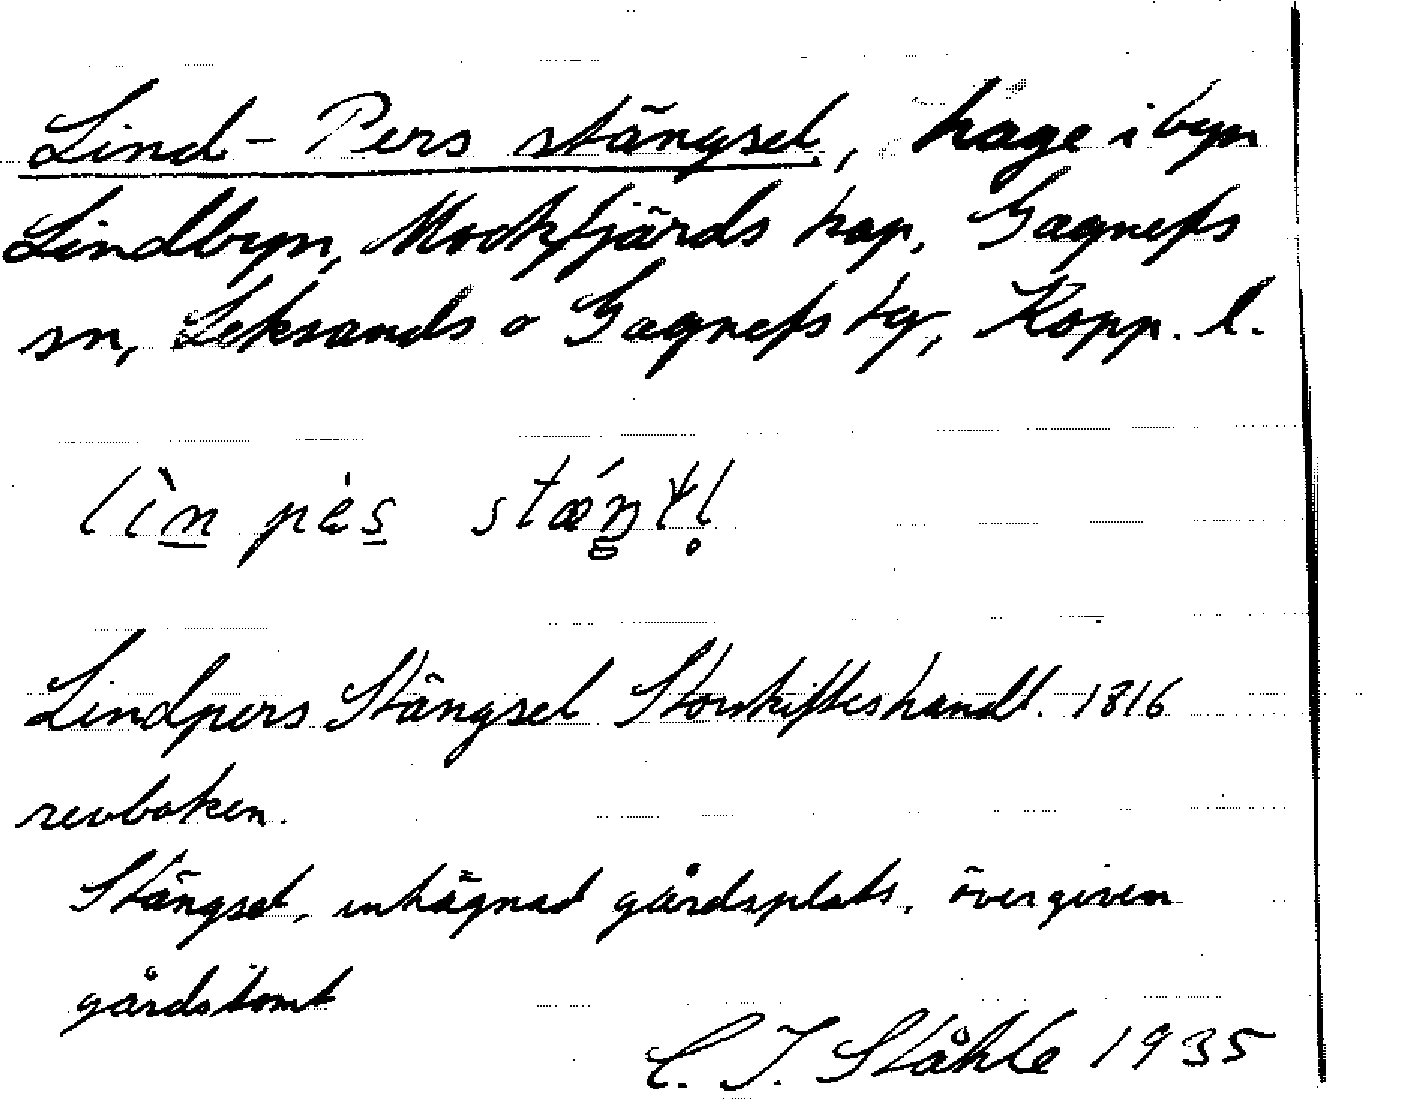 Lind-Pers stängsel, hage i byn
Lindbyn, Mockfjärds kap, Gagnefs
sn, Leksands o Gagnefs tg, Kopp. l.
Lindpers Stängsel Storskifteshandl. 1816
revboken.
Stängsel, inhägnad gårdsplats, övergiven
gårdstomt
C. I. Ståhle 1935